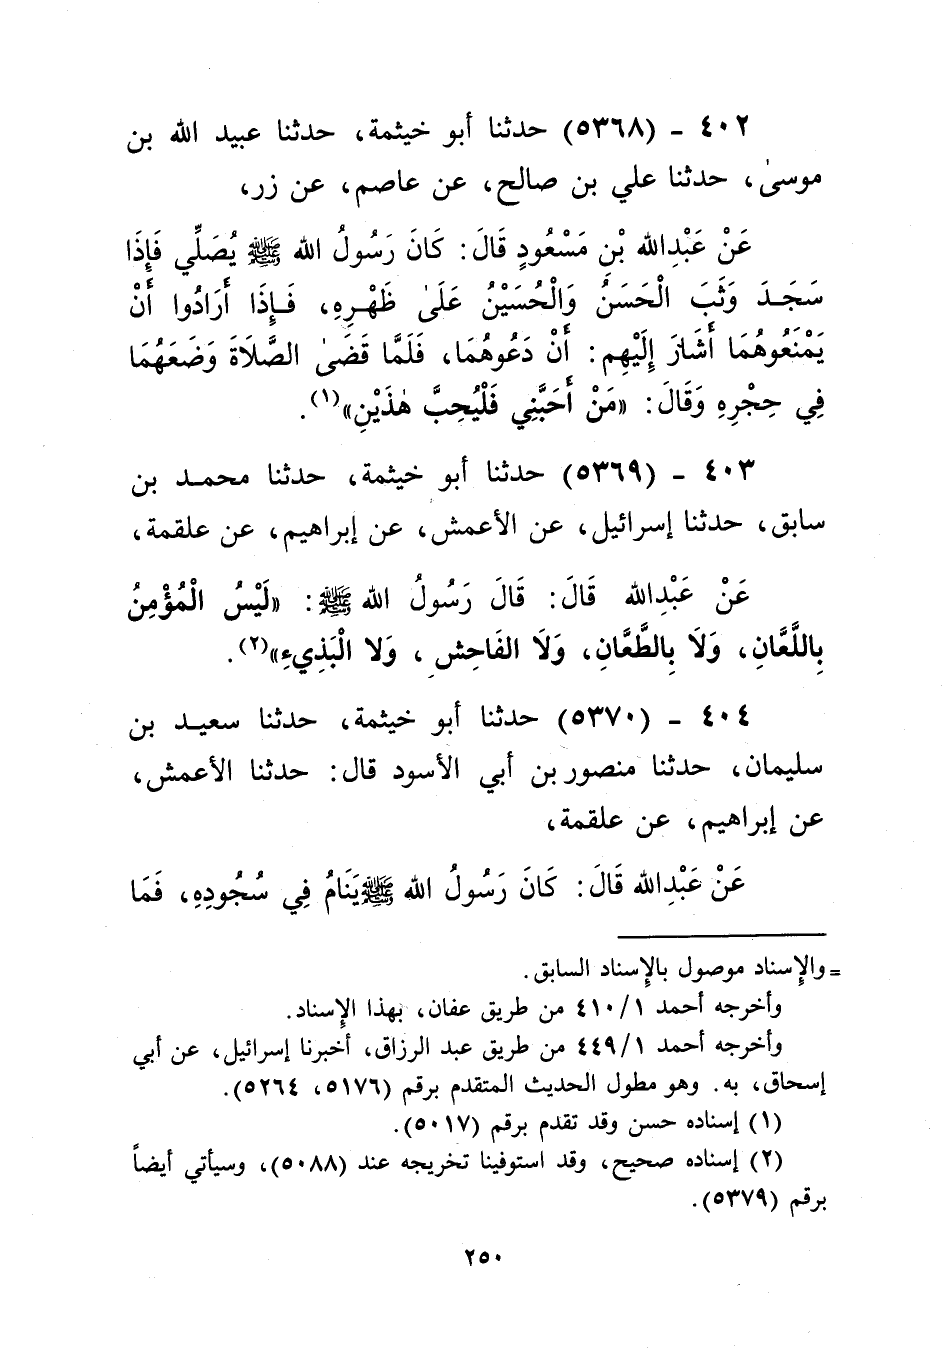 ٤٠٢ - (٥٣٦٨) حدثنا أبو خيثمة، حدثنا عبيد الله بن
موسىٰ، حدثنا علي بن صالح، عن عاصم، عن زر،
عَنْ عَبْدِالله بْنِ مَسْعُودٍ قَالَ: كَانَ رَسُولُ الله ﷺ يُصَلِّي فَإِذَا
سَجَدَ وَثَبَ الْحَسَنُ وَالْحُسَيْنُ عَلَىٰ ظَهْرِهِ، فَإِذَا أَرَادُوا أَنْ
يَمْنَعُوهُمَا أَشَارَ إِلَيْهِم: أَنْ دَعُوهُمَا، فَلَمَّا قَضَىٰ الصَّلَاةَ وَضَعَهُمَا
فِي حِجْرِهِ وَقَالَ: «مَنْ أَحَبَّنِي فَلْيُحِبَّ هٰذَيْنِ»(١).
٤٠٣ - (٥٣٦٩) حدثنا أبو خيثمة، حدثنا محمد بن
سابق، حدثنا إسرائيل، عن الأعمش، عن إبراهيم، عن علقمة،
عَنْ عَبْدِالله قَالَ: قَالَ رَسُولُ الله ﷺ: «لَيْسُ الْمُؤْمِنُ
بِاللَّعَّانِ، وَلَا بِالطَّعَّانِ، وَلَا الفَاحِشِ، وَلا الْبَذِيءِ»(٢).
٤٠٤ - (٥٣٧٠) حدثنا أبو خيثمة، حدثنا سعيد بن
سليمان، حدثنا منصور بن أبي الأسود قال: حدثنا الأعمش،
عن إبراهيم، عن علقمة،
عَنْ عَبْدِالله قَالَ: كَانَ رَسُولُ الله ﷺ يَنَامُ فِي سُجُودِهِ، فَمَا
= والإسناد موصول بالإسناد السابق.
وأخرجه أحمد ١/٤١٠ من طريق عفان، بهذا الإسناد.
وأخرجه أحمد ١/٤٤٩ من طريق عبد الرزاق، أخبرنا إسرائيل، عن أبي
إسحاق، به. وهو مطول الحديث المتقدم برقم (٥١٧٦، ٥٢٦٤).
(١) إسناده حسن وقد تقدم برقم (٥٠١٧).
(٢) إسناده صحيح، وقد استوفينا تخريجه عند (٥٠٨٨)، وسيأتي أيضاً
برقم (٥٣٧٩).
٢٥٠